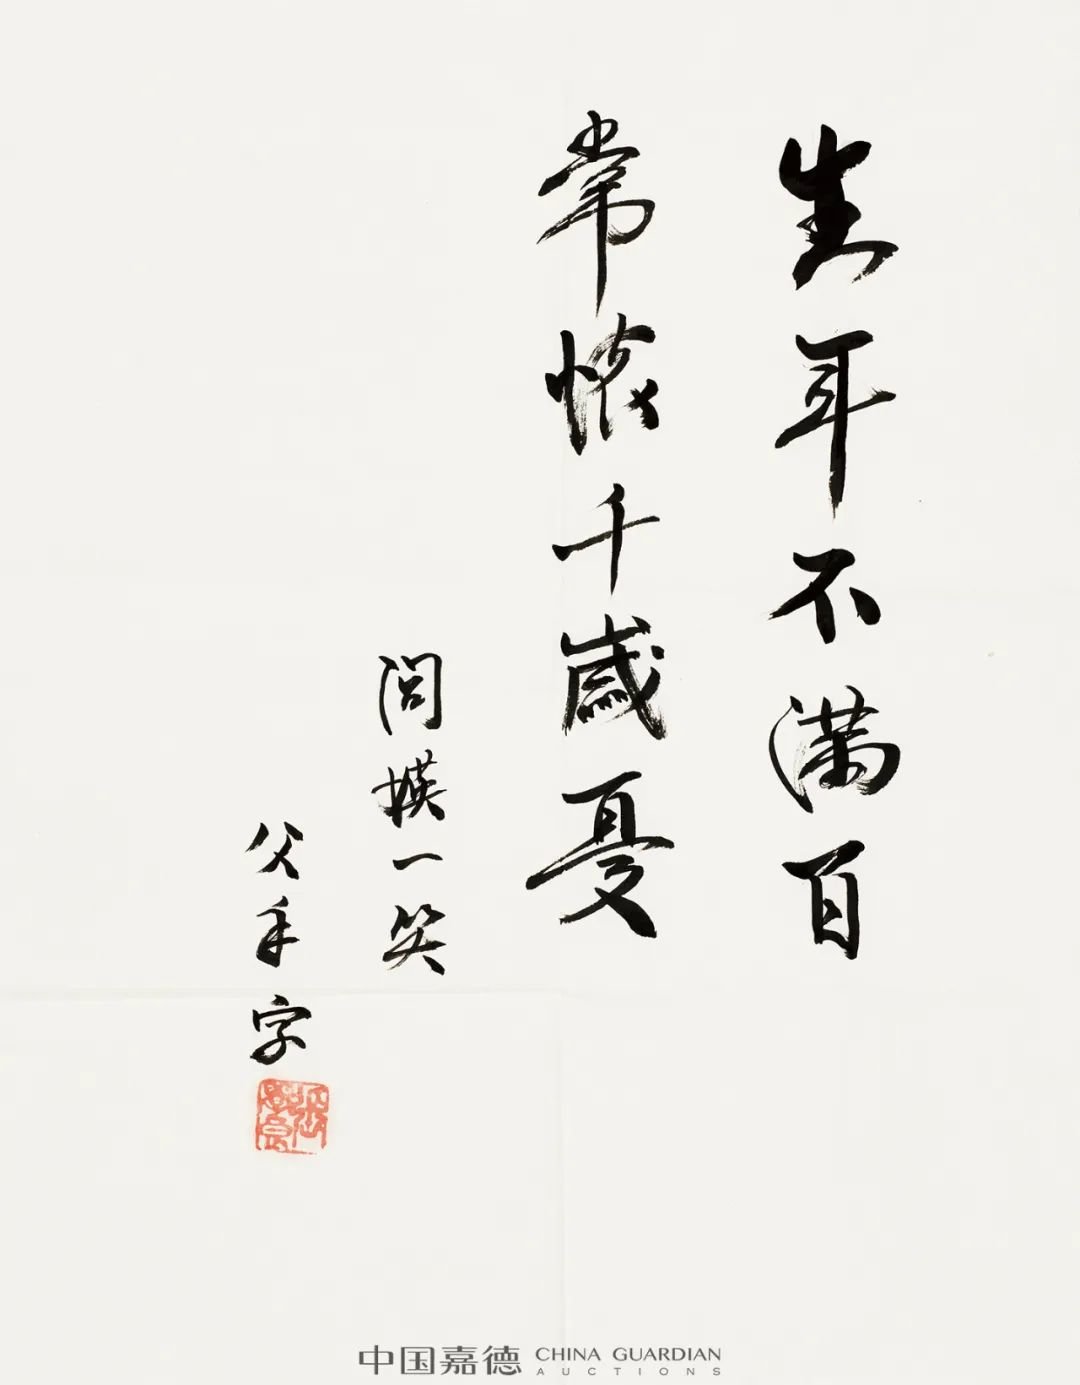 生年不滿百
常懷千歲憂
閭媖一笑
父手字
中国嘉德 CHINA GUARDIAN
AUCTIONS